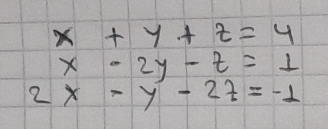 x + y + z = 4
x - 2y - z = 1
2x - y - 2z = -1